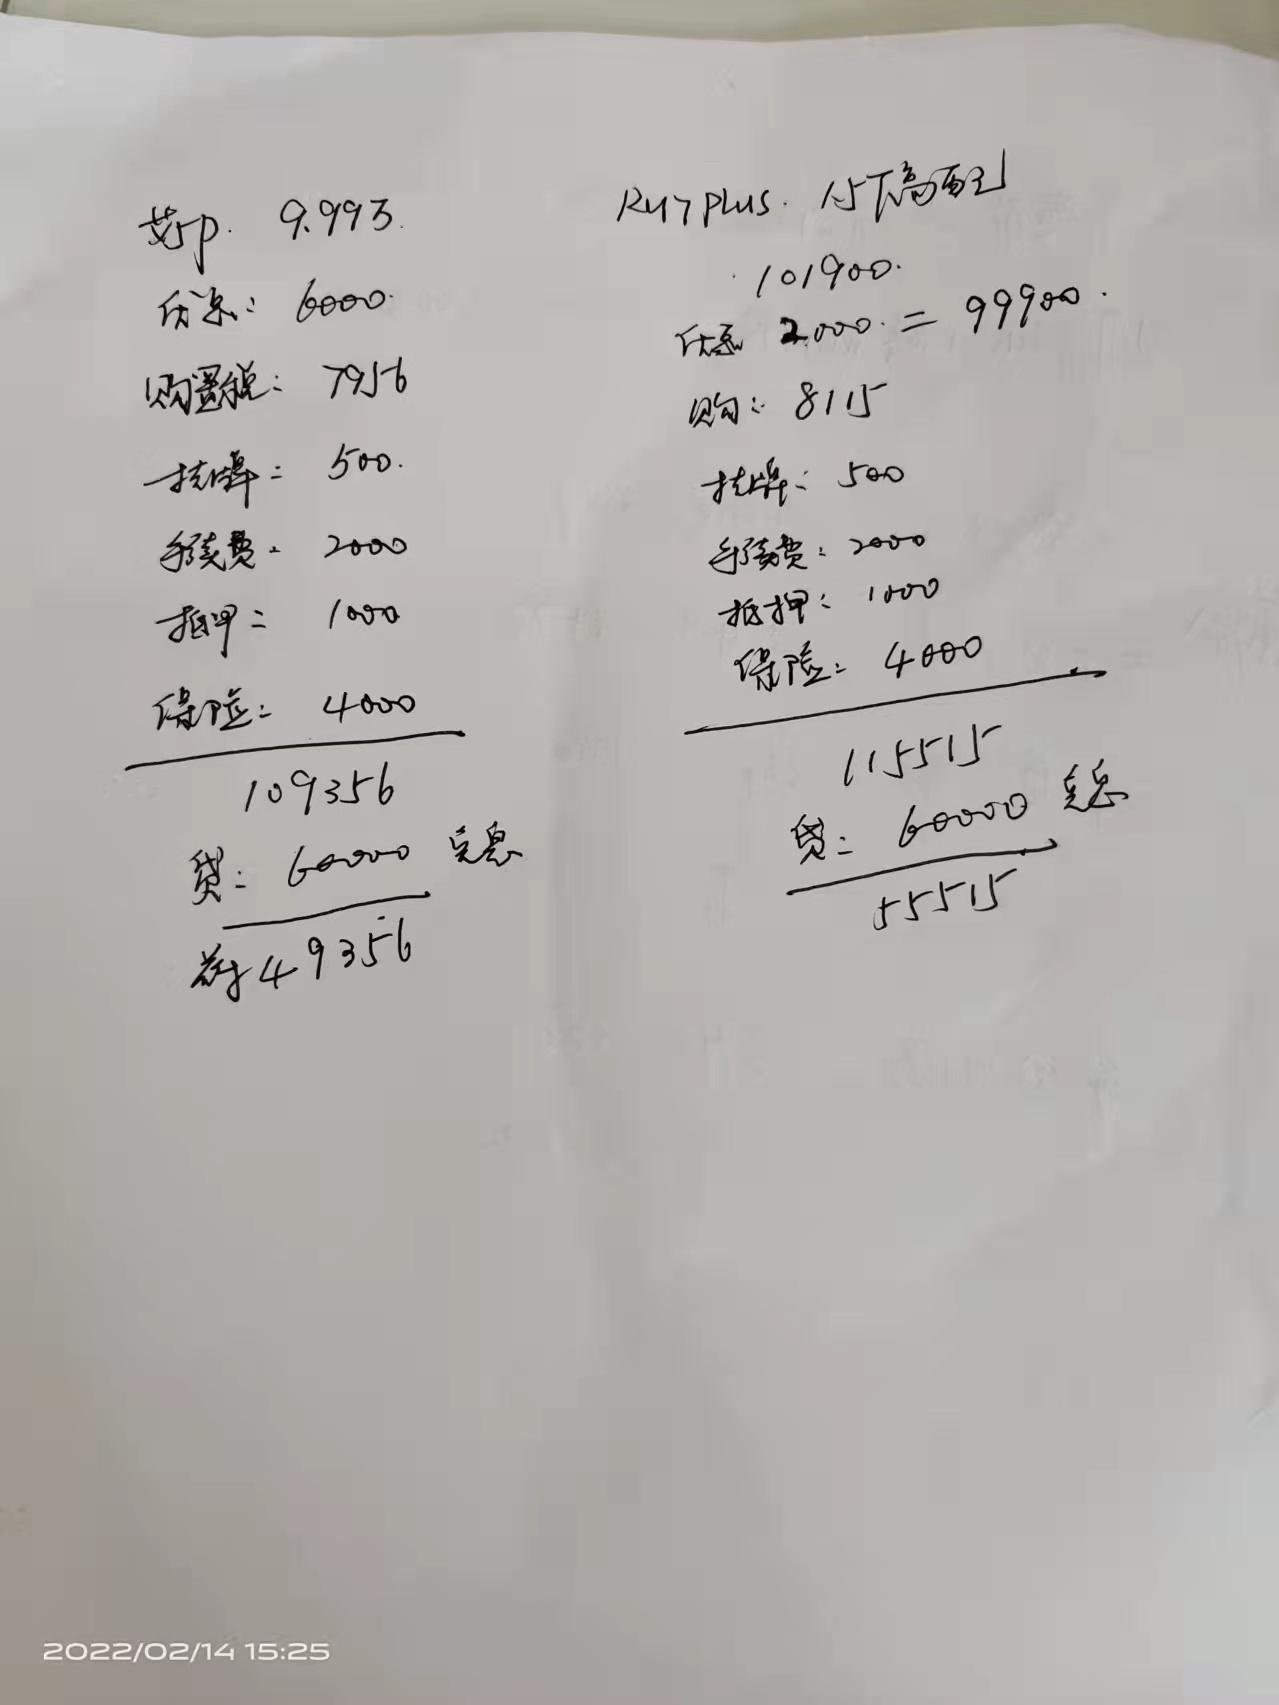 艾ρ. 9.993.
优惠: 6000.
购置税: 7956
挂牌: 500.
手续费: 2000
抵押: 1000
保险: 4000
109356
贷: 60000 免息
首付 49356
Rx7 PLUS. 1.5T高配
101900.
优惠 2000. = 99900.
购: 8115
挂牌: 500
手续费: 2000
抵押: 1000
保险: 4000
115515
贷: 60000 免息
55515
2022/02/14 15:25